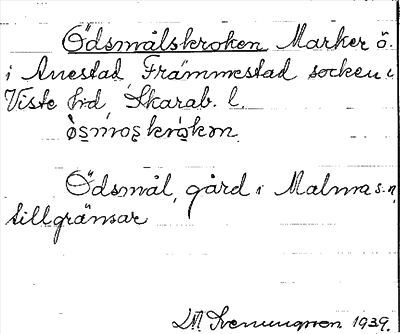 Ödsmålskroken Marker ö.
i Anestad Främmestad socken i
Viste hd, Skarab. l.
Ödsmål, gård i Malma s-n,
tillgränsar
1939.